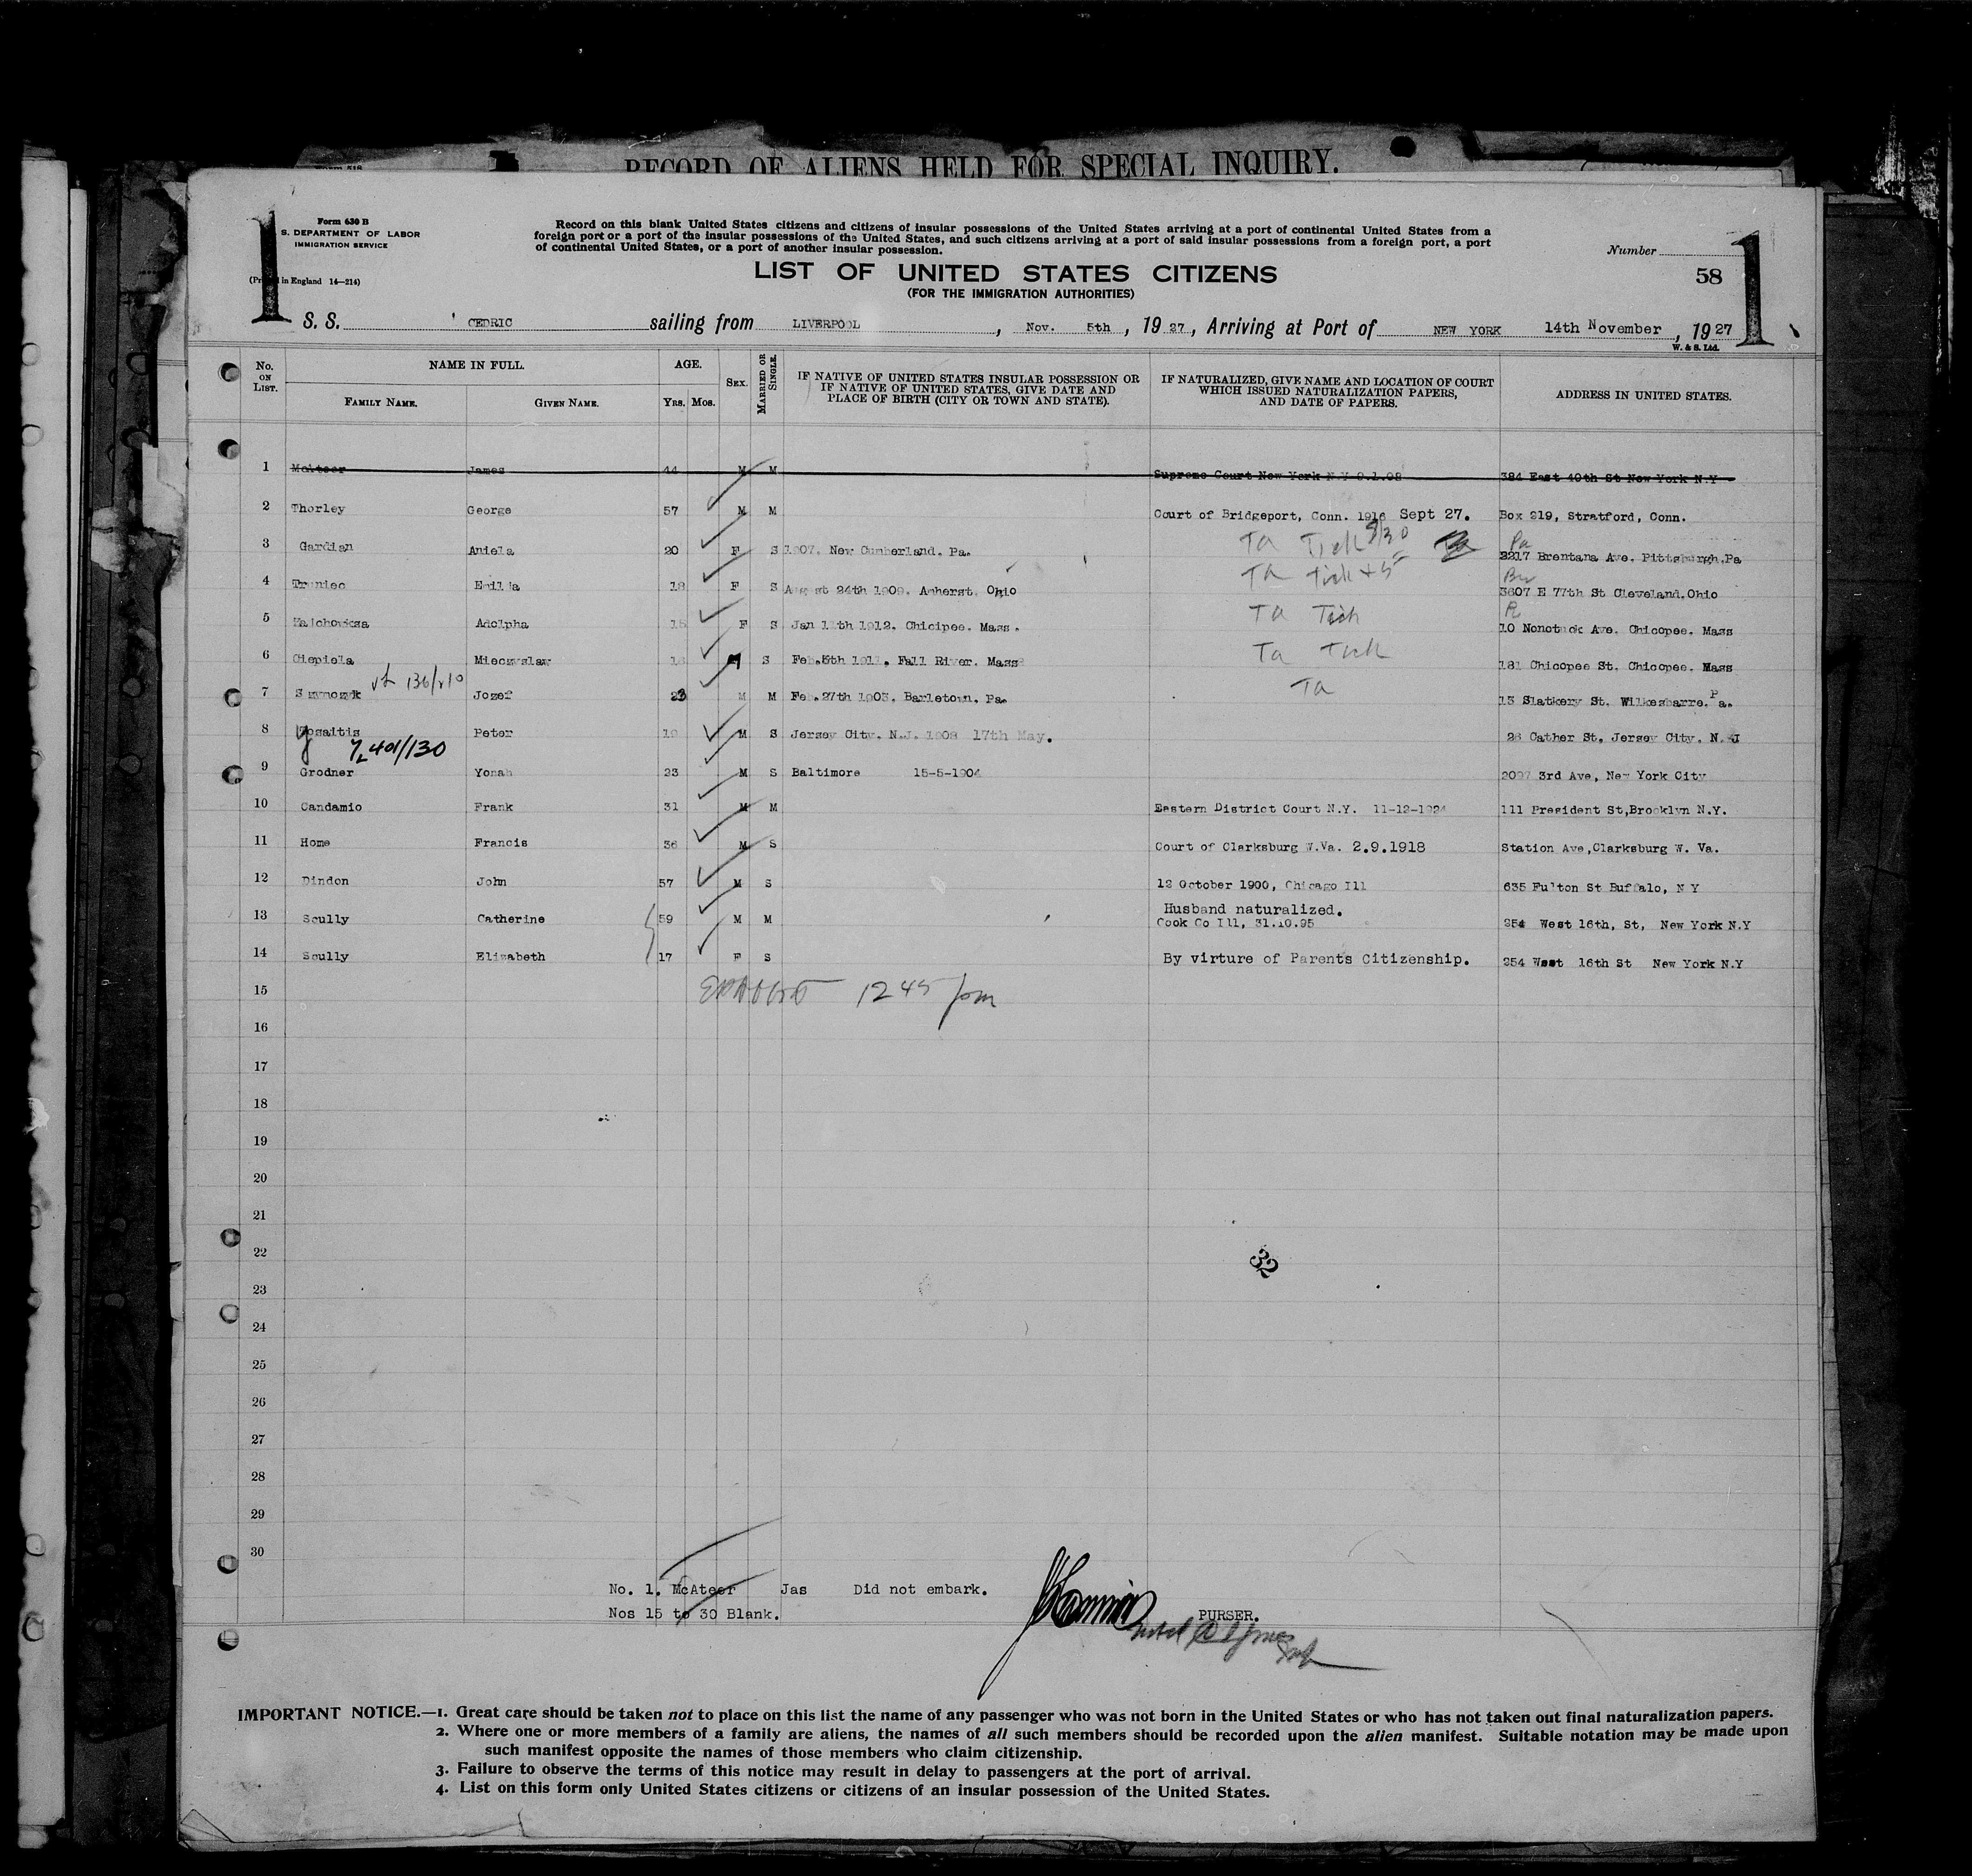 RECORD OF ALIENS HELD FOR SPECIAL INQUIRY.
1
Form 630 B
S. DEPARTMENT OF LABOR
IMMIGRATION SERVICE
(Pr in England 14—214)
Record on this blank United States citizens and citizens of insular possessions of the United States arriving at a port of continental United States from a
foreign port or a port of the insular possessions of the United States, and such citizens arriving at a port of said insular possessions from a foreign port, a port
of continental United States, or a port of another insular possession.
Number
58
1
LIST OF UNITED STATES CITIZENS
(FOR THE IMMIGRATION AUTHORITIES)
S. S. CEDRIC sailing from LIVERPOOL, Nov. 5th, 1927, Arriving at Port of NEW YORK 14th November, 1927
W. & S. Ltd.
No. ON LIST. NAME IN FULL. AGE. SEX. MARRIED OR SINGLE. IF NATIVE OF UNITED STATES INSULAR POSSESSION OR IF NATIVE OF UNITED STATES, GIVE DATE AND PLACE OF BIRTH (CITY OR TOWN AND STATE). IF NATURALIZED, GIVE NAME AND LOCATION OF COURT WHICH ISSUED NATURALIZATION PAPERS, AND DATE OF PAPERS. ADDRESS IN UNITED STATES.
FAMILY NAME. GIVEN NAME. YRS. MOS.
1 McAteer James 44 M M Supreme Court New York N.Y 384 East 40th St New York N.Y
2 Thorley George 57 M M Court of Bridgeport, Conn. 1916 Sept 27. Box 219, Stratford, Conn.
3 Gardian Aniela 20 F S 1907. New Cumberland. Pa. Ta Tick 8/30 Pa 2217 Brentana Ave. Pittsburgh.Pa
4 Truniec Emilia 18 F S August 24th 1909. Amherst. Ohio Ta Tick + 5 3607 E 77th St Cleveland.Ohio
5 Adolpha 15 F S Jan 11th 1912. Chicipee. Mass. Ta Tick 10 Nonotuck Ave. Chicopee. Mass
6 Ciepiola Mieczyslaw 16 M S Feb.5th 1911. Fall River. Mass Ta Tick 181 Chicopee St. Chicopee. Mass
7 Szymczyk Jozef 23 M M Feb.27th 1903. Barletown. Pa. Ta 13 Slatkery St. Wilkesbarre. Pa.
8 Peter 19 M S Jersey City. N.J. 1908 17th May. 26 Cather St. Jersey City. N.J
401/130
9 Grodner Yonah 23 M S Baltimore 15-5-1904 2097 3rd Ave, New York City
10 Candamio Frank 31 M M Eastern District Court N.Y. 11-12-1924 111 President St,Brooklyn N.Y.
11 Home Francis 36 M S Court of Clarksburg W.Va. 2.9.1918 Station Ave,Clarksburg W. Va.
12 Dindon John 57 M S 12 October 1900, Chicago Ill 635 Fulton St Buffalo, N Y
13 Scully Catherine 59 M M Husband naturalized. Cook Co Ill, 31.10.95 254 West 16th, St, New York N.Y
14 Scully Elizabeth 17 F S By virture of Parents Citizenship. 254 West 16th St New York N.Y
15 1245 pm
16
17
18
19
20
21
22
32
23
24
25
26
27
28
29
30
No. 1. McAteer Jas Did not embark.
Nos 15 to 30 Blank.
PURSER.
IMPORTANT NOTICE.—1. Great care should be taken not to place on this list the name of any passenger who was not born in the United States or who has not taken out final naturalization papers.
2. Where one or more members of a family are aliens, the names of all such members should be recorded upon the alien manifest. Suitable notation may be made upon
such manifest opposite the names of those members who claim citizenship.
3. Failure to observe the terms of this notice may result in delay to passengers at the port of arrival.
4. List on this form only United States citizens or citizens of an insular possession of the United States.